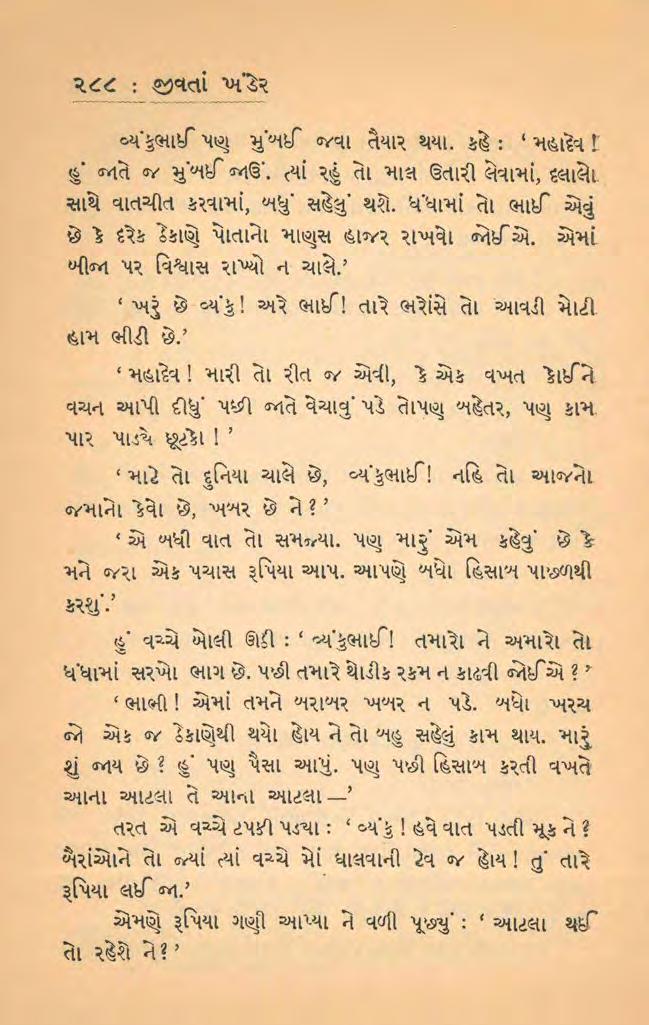 ૨૮૮ : જીવતાં ખંડેર
વ્યંકુભાઈ પણ મુંબઈ જવા તૈયાર થયા. કહે : ‘ મહાદેવ !
હું જાતે જ મુંબઈ જાઉં. ત્યાં રહું તો માલ ઉતારી લેવામાં, દલાલો
સાથે વાતચીત કરવામાં, બધું સહેલું થશે. ધંધામાં તો ભાઈ એવું
છે કે દરેક ઠેકાણે પોતાનો માણસ હાજર રાખવો જોઈએ. એમાં
બીજા પર વિશ્વાસ રાખ્યો ન ચાલે.’
‘ ખરૂં છે વ્યંકુ! અરે ભાઈ! તારે ભરોંસે તો આવડી મોટી
હામ ભીડી છે.’
‘ મહાદેવ ! મારી તો રીત જ એવી, કે એક વખત કોઈને
વચન આપી દીધું પછી જાતે વેચાવું પડે તોપણ બહેતર, પણ કામ
પાર પાડ્યે છૂટકો ! ’
‘ માટે તો દુનિયા ચાલે છે, વ્યંકુભાઈ! નહિ તો આજનો
જમાનો કેવો છે, ખબર છે ને ? ’
‘ એ બધી વાત તો સમજ્યા. પણ મારૂં એમ કહેવું છે કે
મને જરા એક પચાસ રૂપિયા આપ. આપણે બધો હિસાબ પાછળથી
કરશું.’
હું વચ્ચે બોલી ઊઠી : ‘ વ્યંકુભાઈ! તમારો ને અમારો તો
ધંધામાં સરખો ભાગ છે. પછી તમારે થોડીક રકમ ન કાઢવી જોઈએ ? ’
‘ ભાભી ! એમાં તમને બરાબર ખબર ન પડે. બધો ખરચ
જો એક જ ઠેકાણેથી થયો હોય ને તો બહુ સહેલું કામ થાય. મારૂં
શું જાય છે ? હું પણ પૈસા આપું. પણ પછી હિસાબ કરતી વખતે
આના આટલા તે આના આટલા —’
તરત એ વચ્ચે ટપકી પડયા : ‘ વ્યંકુ ! હવે વાત પડતી મૂક ને ?
બૈરાંઓને તો જ્યાં ત્યાં વચ્ચે મોં ઘાલવાની ટેવ જ હોય! તું તારે
રૂપિયા લઈ જા.’
એમણે રૂપિયા ગણી આપ્યા ને વળી પૂછ્યું : ‘ આટલા થઈ
તો રહેશે ને ? ’